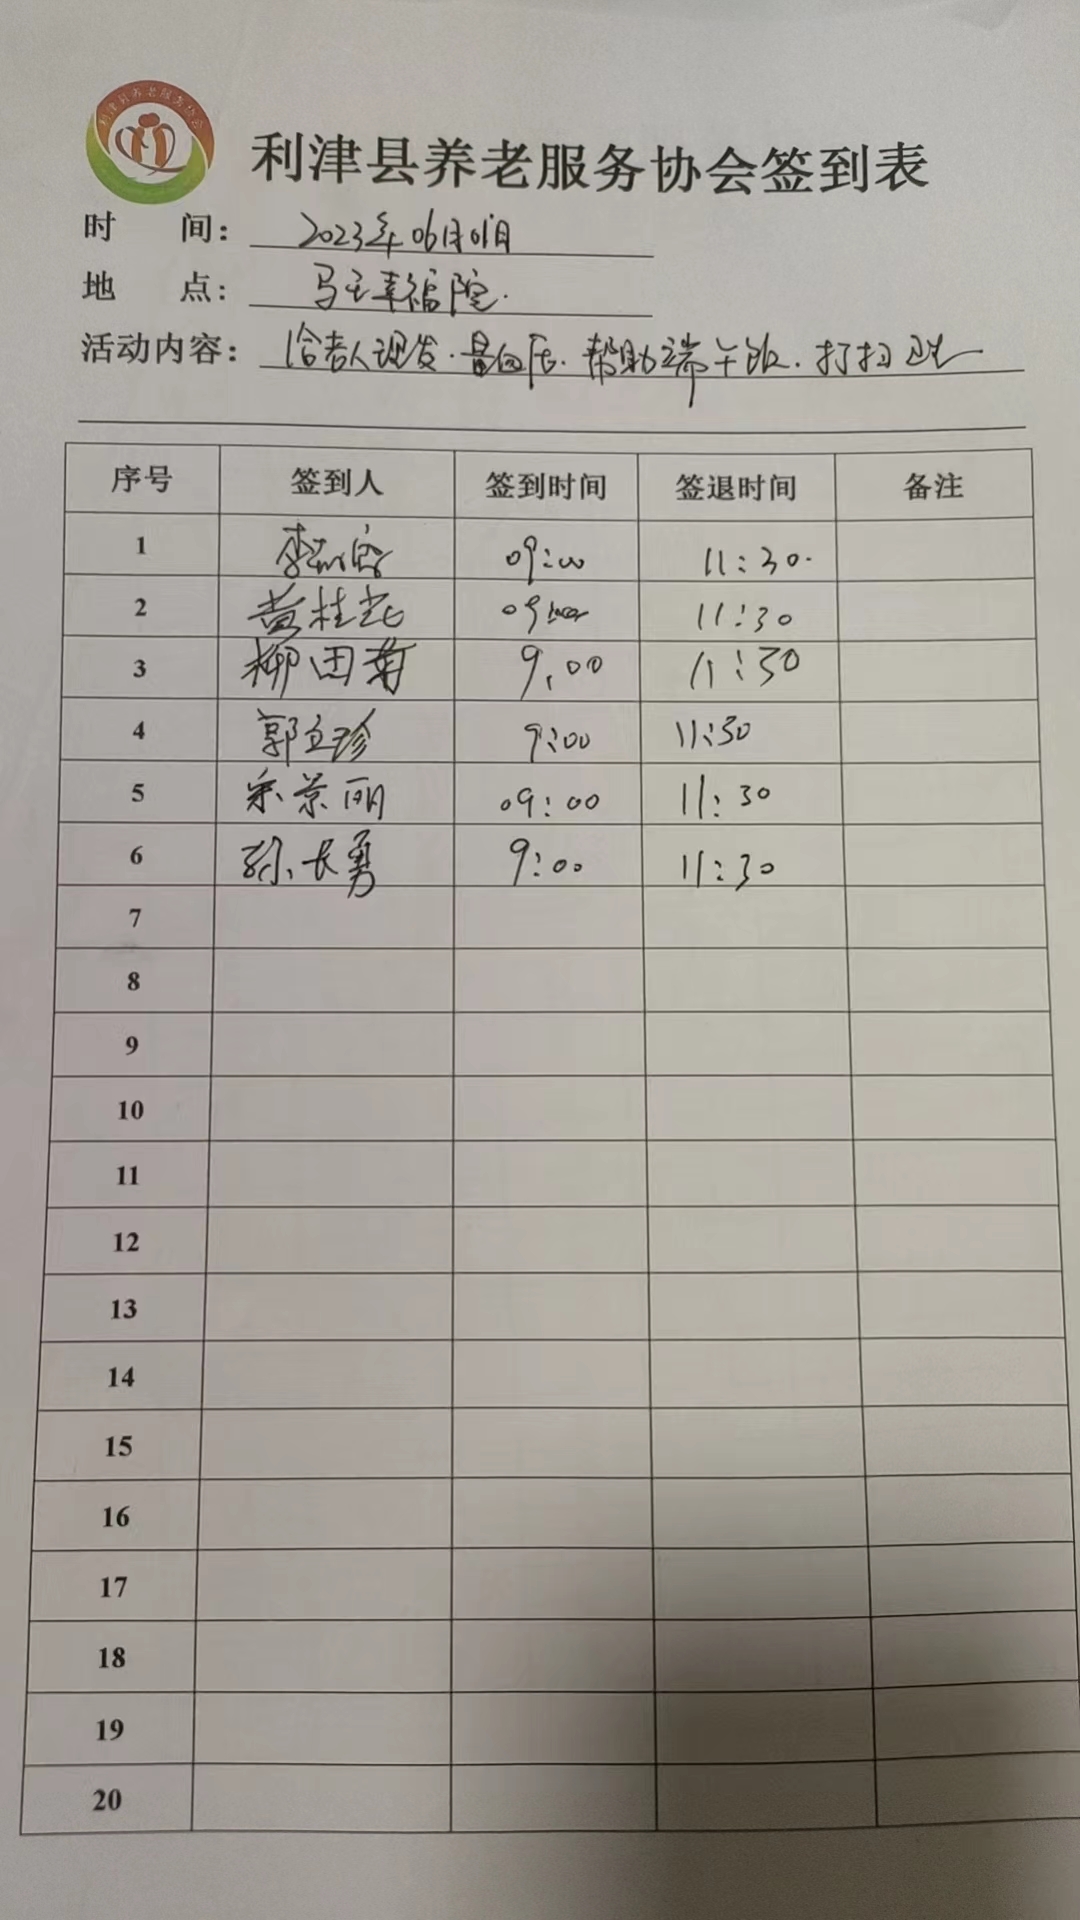 利津县养老服务协会
利津县养老服务协会签到表
时 间: 2023年06月01日
地 点: 马王幸福院.
活动内容: 给老人理发.量血压.帮助端午饭.打扫卫生
序号 签到人 签到时间 签退时间 备注
1 李 09:00 11:30.
2 黄桂花 09:00 11:30
3 柳田菊 9.00 11:30
4 郭立珍 9:00 11:30
5 宋景丽 09:00 11:30
6 孙长勇 9:00 11:30
7
8
9
10
11
12
13
14
15
16
17
18
19
20